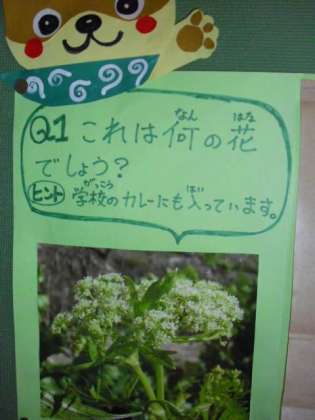 Q1 これは何の花
なん はな
でしょう?
ヒント 学校のカレーにも入っています。
がっこう はい